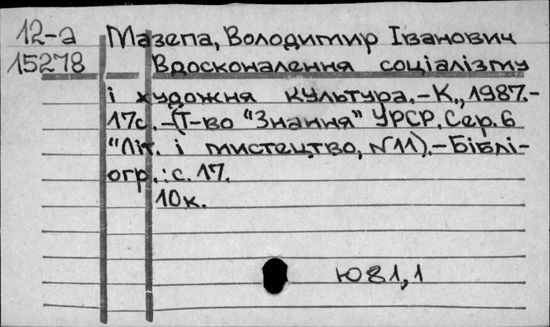 12-а Мазепа, Володимир Іванович
15278 Вдосконалення соціалізму
і художня культура.-К., 1987.-
17с.-(Т-во "Знання" УРСР. Сер. 6
"Літ. і мистецтво, №11).-Біблі-
огр.: с. 17.
10к.
Ю81,1